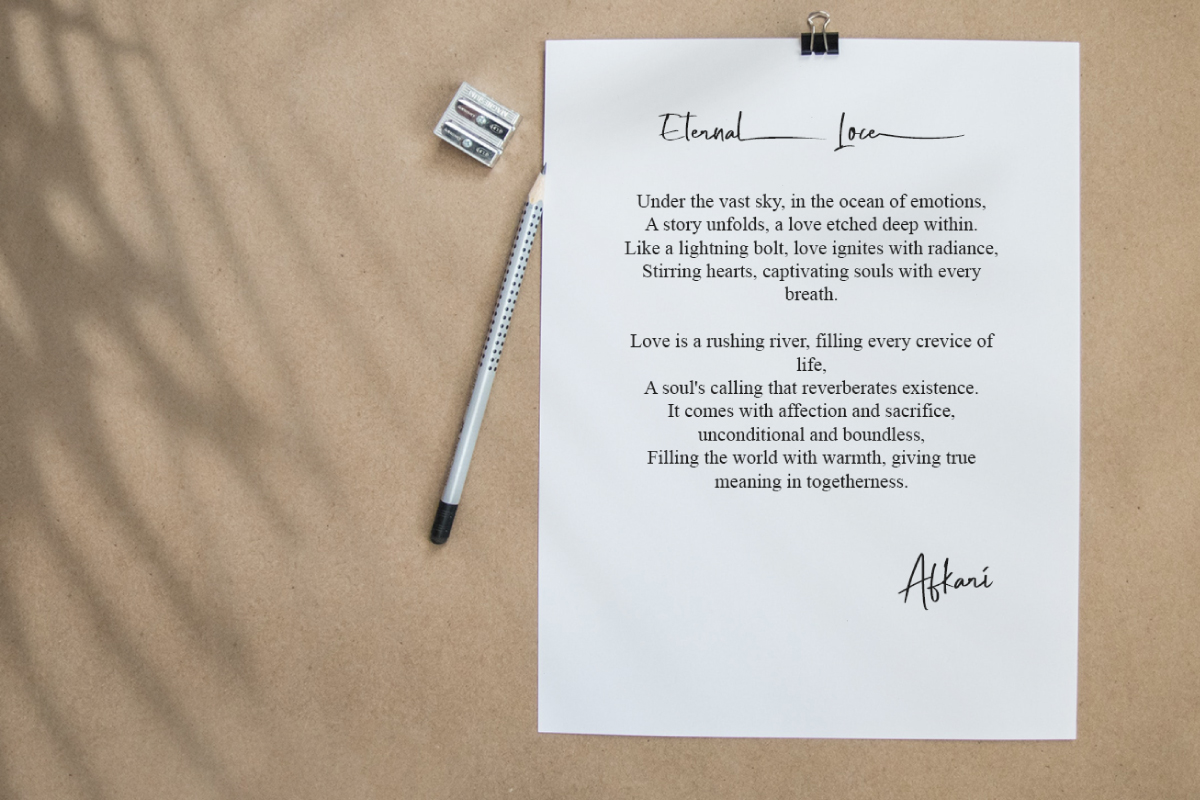 Eternal Loce
Under the vast sky, in the ocean of emotions,
A story unfolds, a love etched deep within.
Like a lightning bolt, love ignites with radiance,
Stirring hearts, captivating souls with every
breath.
Love is a rushing river, filling every crevice of
life,
A soul's calling that reverberates existence.
It comes with affection and sacrifice,
unconditional and boundless,
Filling the world with warmth, giving true
meaning in togetherness.
Afkari